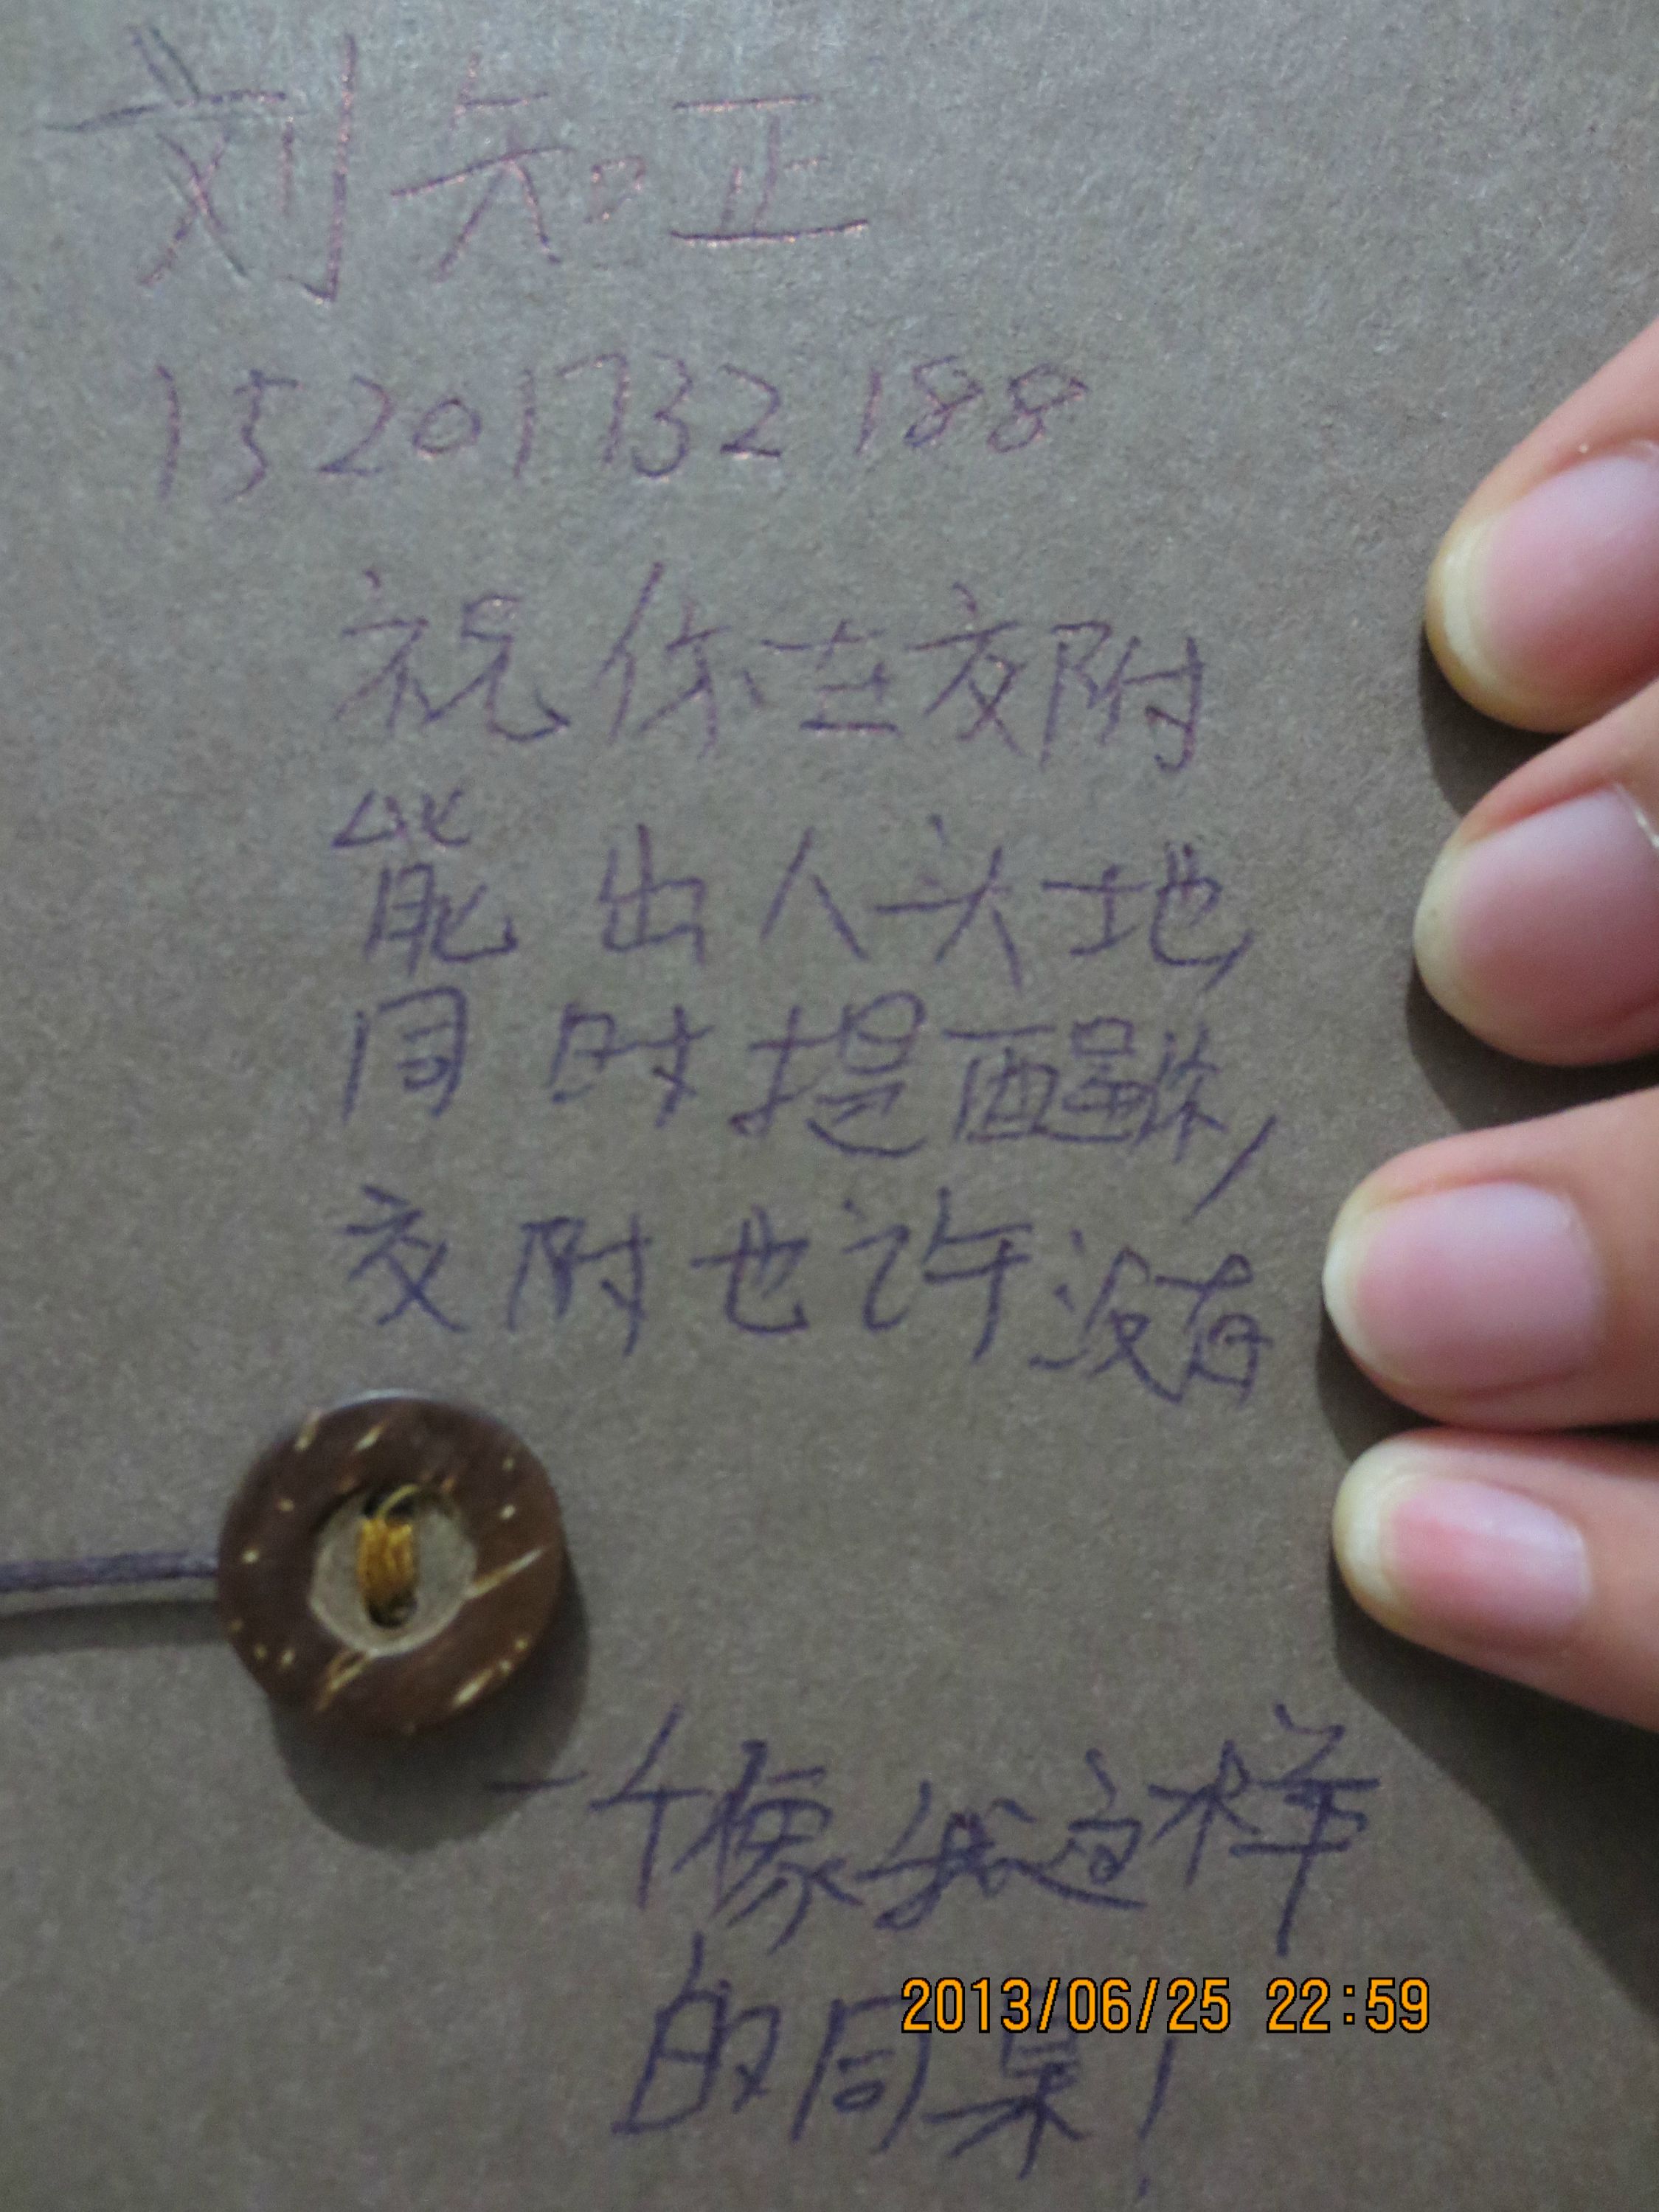 刘知正
15201732188
祝你在交附
能出人头地,
同时提醒你,
交附也许没有
一个像我这样
的同桌!
2013/06/25 22:59